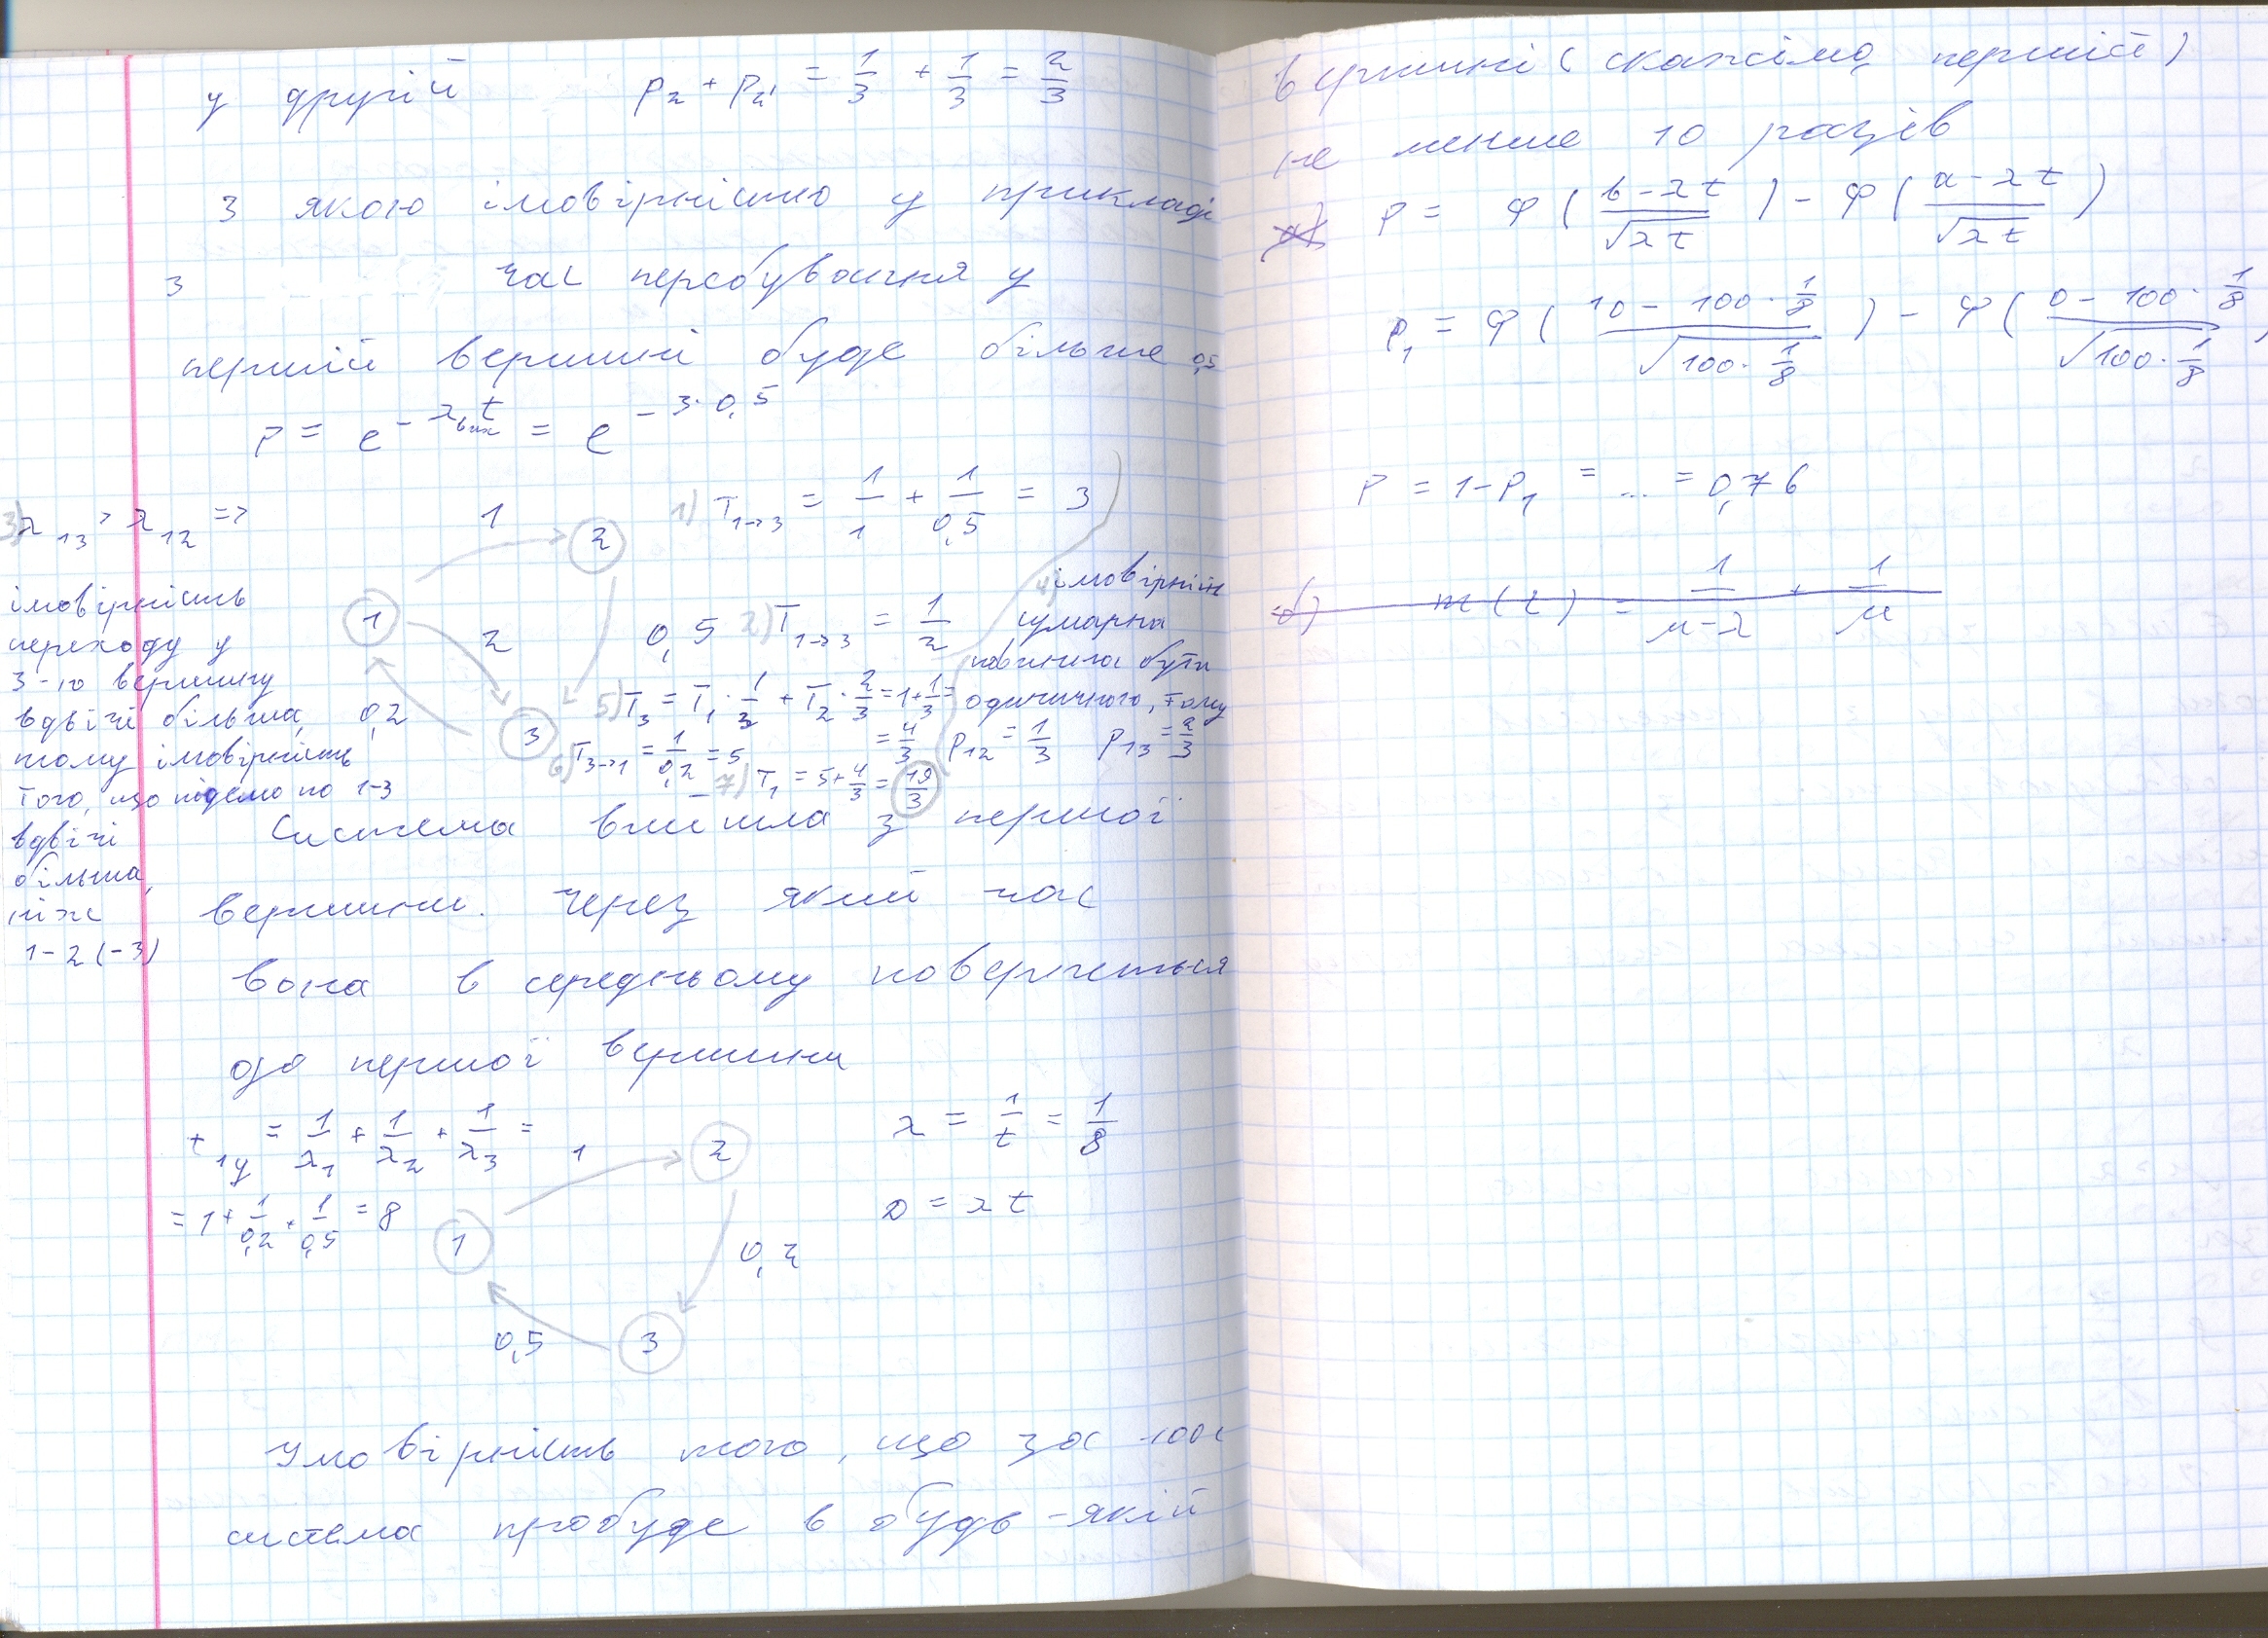 у другій p₂ + p₂' = 1/3 + 1/3 = 2/3
З якою імовірністю у прикладі
3 час перебування у
першій вершині буде більше 0,5
P = e^(-λвих t) = e^(-3·0,5)
3) λ₁₃ > λ₁₂ =>
імовірність
переходу у
3-ю вершину
вдвічі більша,
тому імовірність
того, що підемо по 1-3
вдвічі
більша,
ніж
1-2(-3)
1
2
1
2
0,5
3
0,2
1) T₁→₃ = 1/1 + 1/0,5 = 3
2) T₁→₃ = 1/2
4) імовірність
сумарна
повинна бути
одиничною, тому
p₁₂ = 1/3 p₁₃ = 2/3
5) T₃ = T₁ · 1/3 + T₂ · 2/3 = 1 + 1/3 =
= 4/3
6) T₃→₁ = 1/0,2 = 5
7) T₁ = 5 + 4/3 = 19/3
Система вийшла з першої
вершини. Через який час
вона в середньому повернеться
до першої вершини
t₁у = 1/λ₁ + 1/λ₂ + 1/λ₃ =
= 1 + 1/0,2 + 1/0,5 = 8
1
2
1
0,2
0,5
3
λ = 1/t = 1/8
D = λt
Умовірність того, що за 100с
система пробуде в будь-якій
вершині (скажімо, першій)
не менше 10 разів
а)
P = φ((b - λt)/√(λt)) - φ((a - λt)/√(λt))
P₁ = φ((10 - 100 · 1/8)/√(100 · 1/8)) - φ((0 - 100 · 1/8)/√(100 · 1/8))
P = 1 - P₁ = ... = 0,76
б) m(t) = 1/(μ - λ) + 1/μ